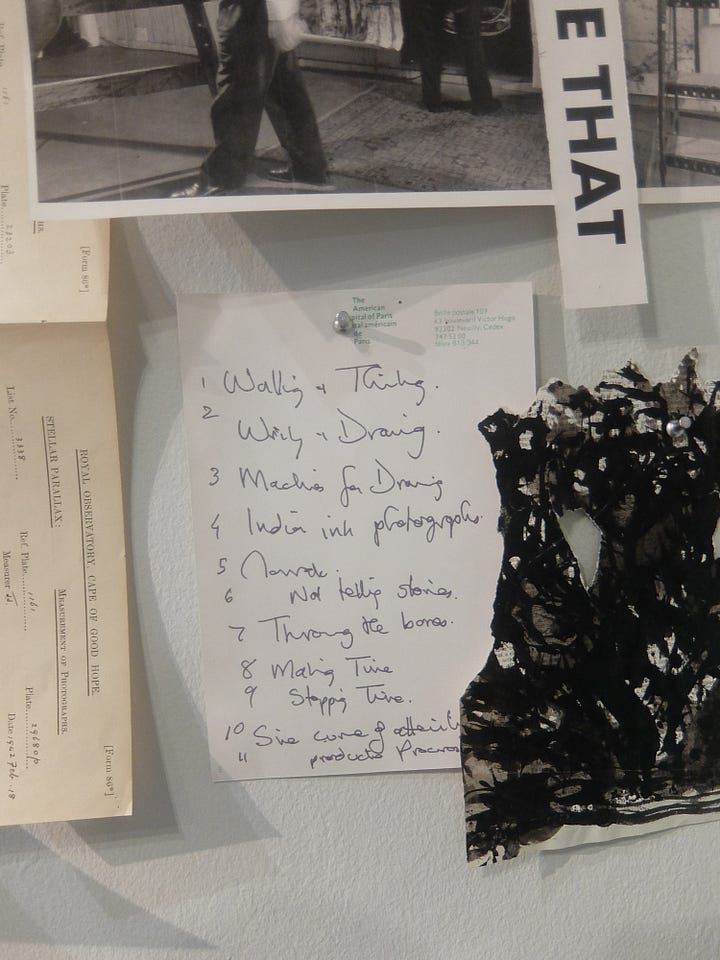 E THAT
Ref. Plate
1161
Plate
[Form 86*]
List No. 3338
Ref. Plate 1161
Plate 29680p
STELLAR PARALLAX:
Measurer
Date 1942 Feb. 18
ROYAL OBSERVATORY, CAPE OF GOOD HOPE.
MEASUREMENT OF PHOTOGRAPHS.
[Form 86*]
The
American
pital of Paris
ital américain
de
Paris
Boîte postale 109
63 Boulevard Victor Hugo
92202 Neuilly, Cedex
747 53 00
1 Walking + Thinking.
2
Writing + Drawing.
3 Machines for Drawing
4 India ink photographs.
5
6 Not telling stories.
7 Throwing the bones.
8 Making Time
9 Stopping Time.
10 Sine curve of
11 productive